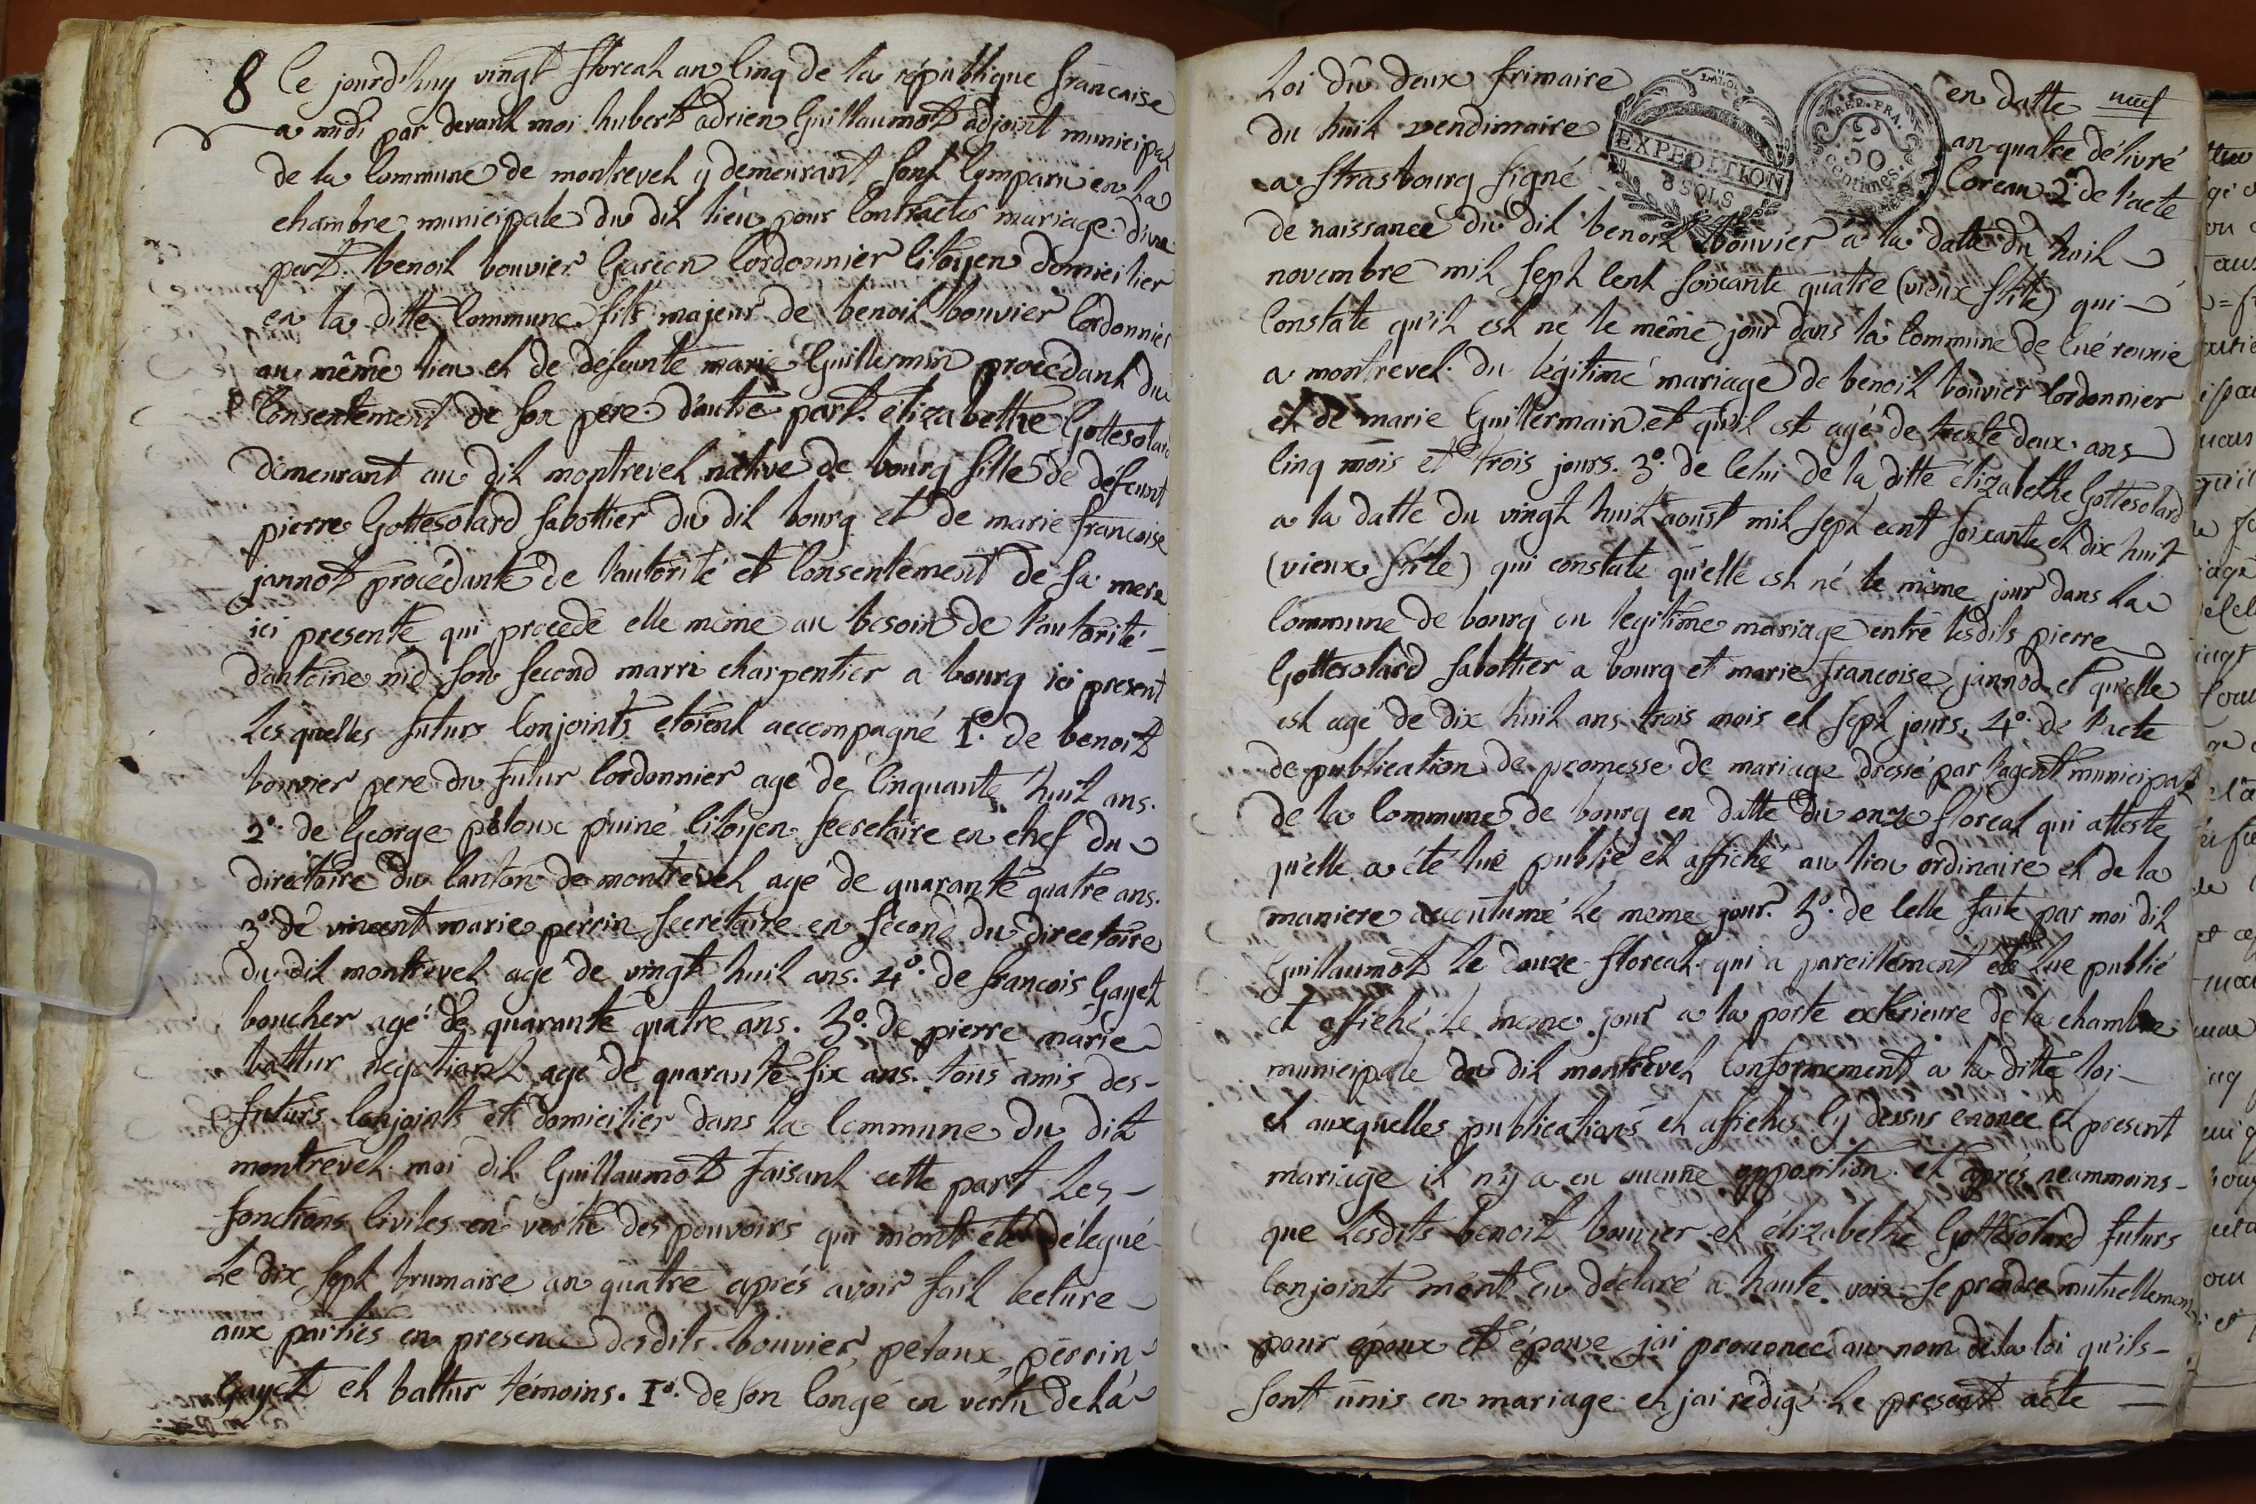 8 Ce jourd'huy vingt floreal an Cinq de la république francaise
a midi par devant moi hubert adrien Guillaumot adjoint municipal
de la Commune de montrevel y demeurant sont Comparu en la
chambre municipale du dit lieu pour Contracter mariage d'une
part. benoit bouvier Garçon Cordonnier Citoyen domicilier
en la ditte Commune fils majeur de benoit bouvier Cordonnier
au même lieu et de défeunte marie Guillermin procédant du
Consentement de son pere. d'autre part. élizabethe Gottesolard
demeurant au dit montrevel native de bourg fille de défeunt
pierre Gottesolard sabottier du dit bourg et de marie francoise
jannot procédante de l'autorité et Consentement de sa mere
ici presente qui procede elle même au besoin de l'autorité
d'antoine nid son second marri charpentier a bourg ici present
Lesquelles futurs Conjoints étoient accompagné 1º. de benoit
bouvier pere du futur Cordonnier agé de Cinquante huit ans.
2º. de George peloux puiné Citoyen secretaire en chef du
directoire du Canton de montrevel agé de quarante quatre ans.
3º. de vincent marie perrin secretaire en second du directoire
du dit montrevel agé de vingt huit ans. 4º. de françois Gayet
boucher agé de quarante quatre ans. 5º. de pierre marie
battur negotiant agé de quarante six ans. tous amis des
futurs Conjoints et domicilier dans la Commune du dit
montrevel. moi dit Guillaumot faisant cette part les
fonctions Civiles en vertue des pouvoirs qui m'ont été délegué
Le dix sept brumaire an quatre aprés avoir fait lecture
aux parties en presence desdits bouvier, peloux, perrin
Gayet et battur témoins. 1º. de son Congé en vertu de la
neuf
Loi du deux frimaire en datte
du huit vendimaire an quatre délivré
a Strasbourg signé Coreau 2º. de l'acte
REP. FRA.
50
Centimes.
EXPEDITION
8 SOLS
de naissance du dit benoit bouvier a la datte du huit
novembre mil sept Cent soixante quatre (vieux stile) qui
Constate qu'il est né le même jour dans la Commune de Cué reunie
a montrevel. du légitime mariage de benoit bouvier Cordonnier
et de marie Guillermain et qu'il est agé de trente deux ans
Cinq mois et trois jours. 3º. de Celui de la ditte élizabethe Gottesolard
a la datte du vingt huit aoust mil sept cent soixante et dix huit
(vieux stile) qui constate qu'elle est né le même jour dans la
Commune de bourg en legitime mariage entre lesdits pierre
Gottesolard sabottier a bourg et marie francoise jannod et qu'elle
est agé de dix huit ans trois mois et sept jours. 4º. de l'acte
de publication de promesse de mariage dressé par l'agent municipal
de la Commune de bourg en datte du onze floreal qui atteste
qu'elle a été lue publié et affiché au lieu ordinaire et de la
maniere accoutumé le meme jour. 5º. de Celle faite par moi dit
Guillaumot le douze floreal. qui a pareillement été lue publié
et affiché le meme jour a la porte exterieure de la chambre
municipale du dit montrevel Conformement a la ditte loi
et auxquelles publications et affiches Cy dessus enoncé et present
mariage il n'y a eu aucune opposition. et aprés neammoins
que lesdits benoit bouvier et élizabethe Gottesolard futurs
Conjoints m'ont eu déclaré a haute voix se prendre mutuellement
pour époux et épouse j'ai prononcé au nom de la loi qu'ils
sont unis en mariage et j'ai redigé le present acte